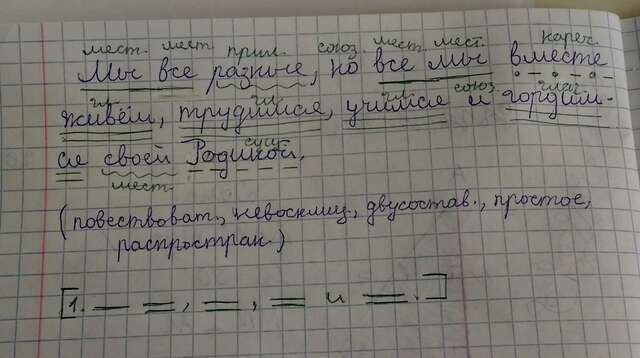 мест. мест. прил. союз. мест. мест. нареч.
Мы все разные, но все мы вместе
гл. гл. гл. союз. глаг.
живём, трудимся, учимся и гордим-
сущ.
ся своей Родиной.
мест.
(повествоват., невосклиц, двусостав., простое,
распростран.)
[1. — =, =, = и =.]